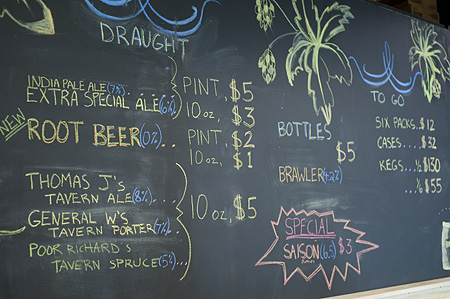 DRAUGHT
INDIA PALE ALE (7%)
EXTRA SPECIAL ALE (6%)
PINT, $5
10oz, $3
NEW
ROOT BEER (0%)
PINT, $2
10oz, $1
THOMAS J'S
TAVERN ALE (8%)
GENERAL W'S
TAVERN PORTER (7%)
POOR RICHARD'S
TAVERN SPRUCE (5%)
10oz, $5
BOTTLES
$5
BRAWLER (4.2%)
SPECIAL
SAISON (6.5) $3
TO GO
SIX PACKS.. $12
CASES.... $32
KEGS... ½ $130
... ⅙ $55